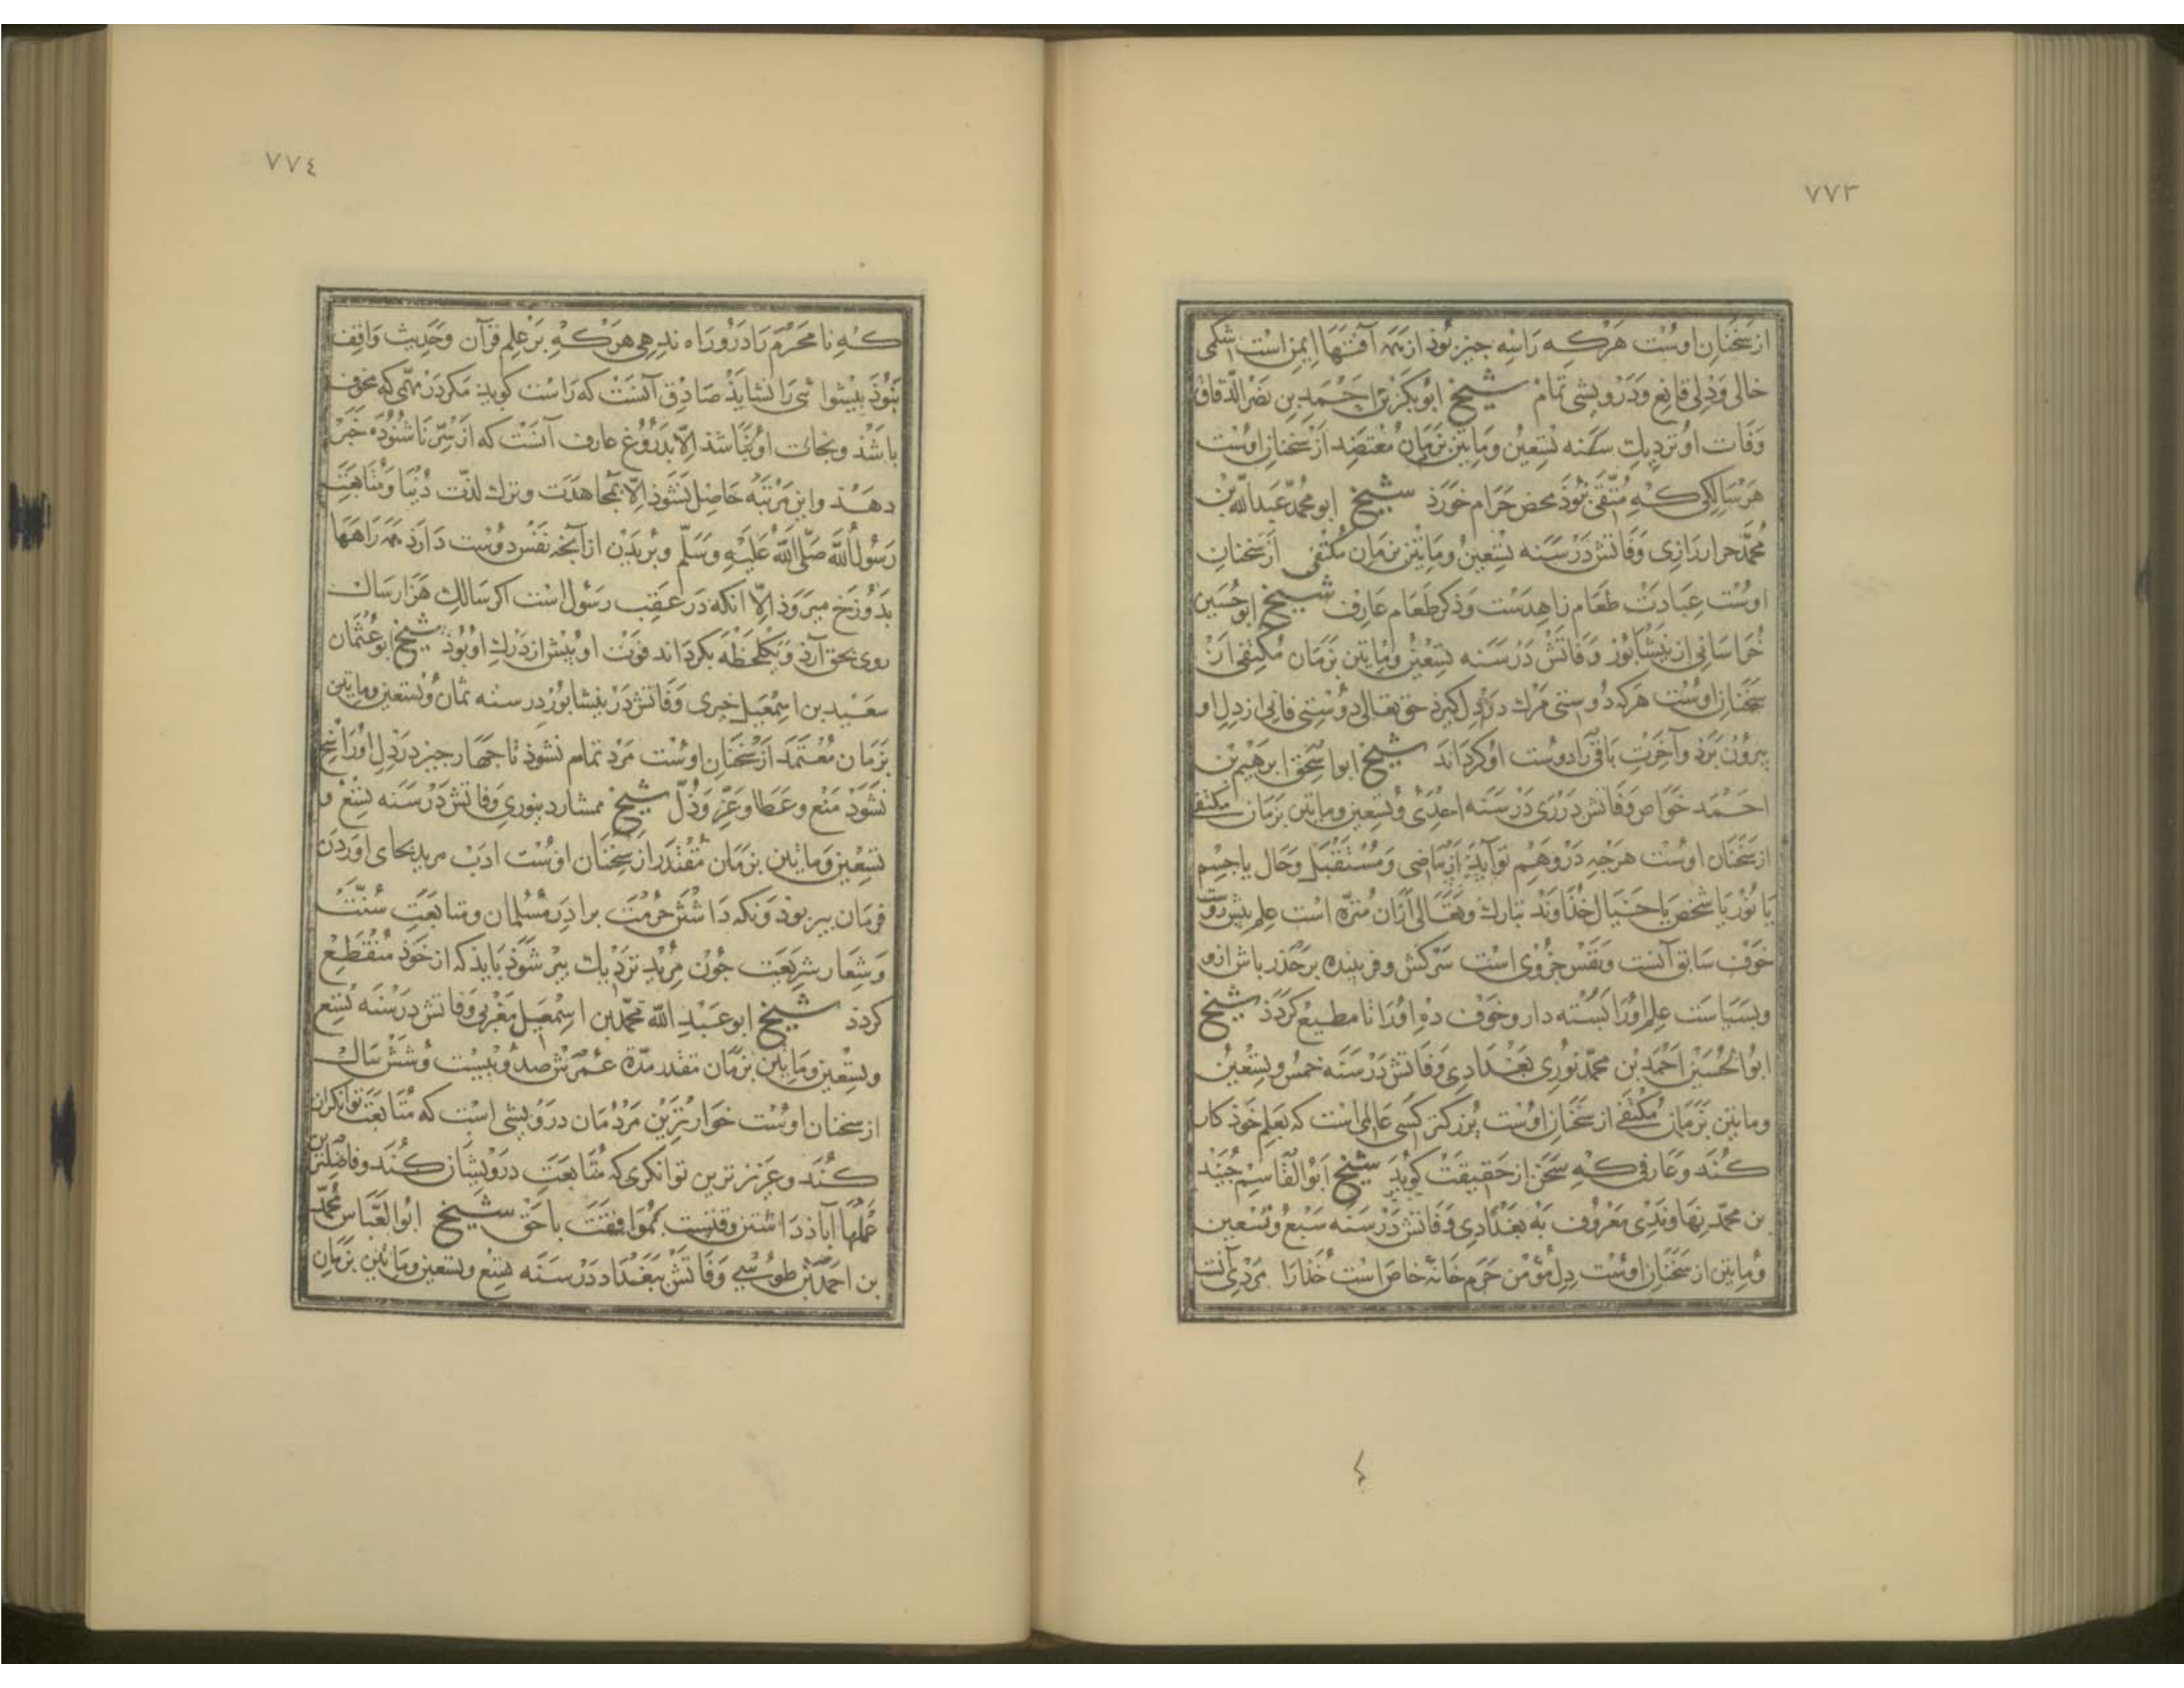 ٧٧٣
از سخنان اوست هركه را سه جيز بوذ از همه آفتها ايمن است شكمى
خالى و دلى قانع و درويشى تمام شيخ ابوبكر بن احمد بن نصر الدقاق
وفات او نزديك سنه تسعين و مايتين بزمان معتضد از سخنان اوست
هر سالكى كه متقى نبوذ محض حرام خورذ شيخ ابو محمد عبدالله بن
محمد حراز رازى وفاتش در سنه تسعين و مايتين بزمان مكتفى از سخنان
اوست عبادت طعام زاهدست و ذكر طعام عارف شيخ ابوحسين
خراسانى از نيشابور وفاتش در سنه تسعين و مايتين بزمان مكتفى از
سخنان اوست هركه دوستى مرك در دل كيرذ حق تعالى دوستى فانى از دل او
بيرون برذ و آخرت باقى را دوست او كرداند شيخ ابو اسحق ابرهيم بن
احمد خواص وفاتش در رى در سنه احدى و تسعين و مايتين بزمان مكتفى
از سخنان اوست هرجه در وهم تو آيد از ماضى و مستقبل و حال يا جسم
يا نور يا شخص يا خيال خذاوند تبارك و تعالى از ان منزه است علم بيش روست
خوف سايق آنست و نفس حروى است سركش و فريبنده برحذر باش ازو
و بسياست علم او را بسته دار و خوف ده او را تا مطيع كردذ شيخ
ابوالحسين احمد بن محمد نورى بغدادى وفاتش در سنه خمس و تسعين
و مايتين بزمان مكتفى از سخنان اوست بزركتر كسى عالمى است كه بعلم خوذ كار
كند و عارفى كه سخن از حقيقت كويد شيخ ابوالقاسم جنيد
بن محمد نهاوندى معروف به بغدادى وفاتش در سنه سبع و تسعين
و مايتين از سخنان اوست دل مؤمن حرم خانه خاص است خدا را مردى آنست
٤
٧٧٤
كه نامحرم را در و راه ندهى هركه بر علم قرآن و حديث واقف
نبوذ بيشوائى را نشايذ صادق آنست كه راست كويد مكر در مهمى كه مخوف
باشذ و نجات او نباشذ الا بدروغ عارف آنست كه از سر ناشنوده خبر
دهذ و اين مرتبه حاصل نشوذ الا بمجاهدت و ترك لذت دنيا و متابعت
رسول الله صلى الله عليه و سلم و بريدن از آنجه نفس دوست دارذ همه راهها
بدوزخ ميروذ الا انكه در عقب رسول است اكر سالك هزار سال
روى بحق آرذ و يكلحظه بكرداند فوت او بيش از درك او بوذ شيخ ابو عثمان
سعيد بن اسمعيل خيرى وفاتش در نيشابور در سنه ثمان و تسعين و مايتين
بزمان معتمد از سخنان اوست مرد تمام نشوذ تا جهار جيز در دل او راسخ
نشوذ منع و عطا و عز و ذل شيخ ممشاد دينورى وفاتش در سنه تسع و
تسعين و مايتين بزمان مقتدر از سخنان اوست ادب مريد بجاى اوردن
فرمان بير بوذ و نكه داشتن حرمت برادر مسلمان و متابعت سنت
و شعار شريعت جون مريد نزديك بير شوذ بايذ كه از خوذ منقطع
كردذ شيخ ابو عبد الله محمد بن اسمعيل مغربى وفاتش در سنه تسع
و تسعين و مايتين بزمان مقتدر مدة عمرش صد و بيست و شش سال
از سخنان اوست خوارترين مردمان درويشى است كه متابعت توانكران
كند و عزيزترين توانكرى كه متابعت درويشان كند و فاضلترين
عملها آباد داشتن وقتست بموافقت با حق شيخ ابوالعباس محمد
بن احمد بن طوسى وفاتش ببغداد در سنه تسع و تسعين و مايتين بزمان